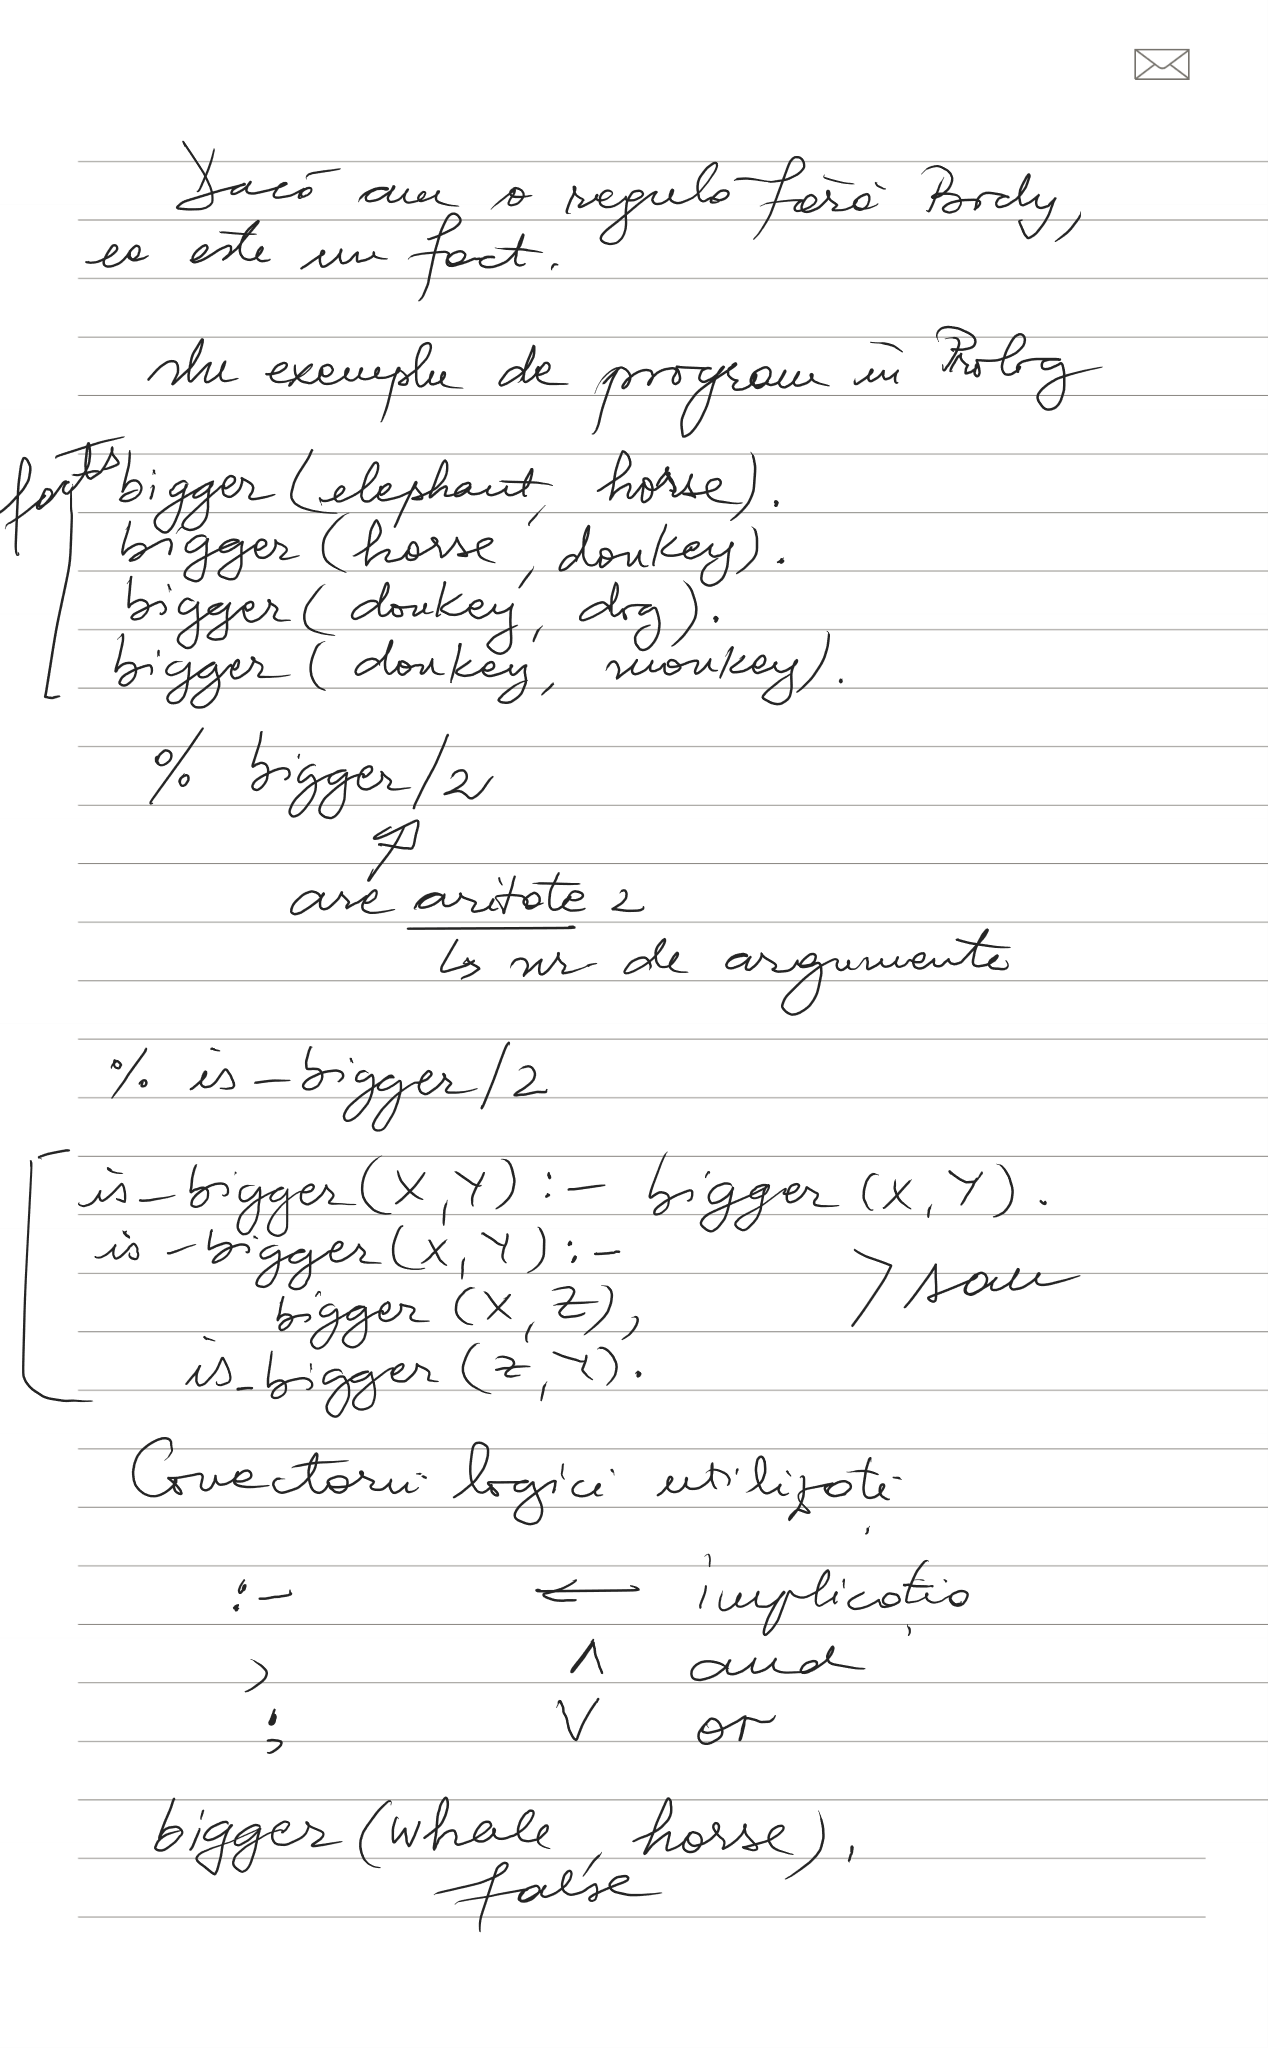 Dacă am o regulă fără Body,
ea este un fact.
Un exemplu de program în Prolog
facts
bigger(elephant, horse).
bigger(horse, donkey).
bigger(donkey, dog).
bigger(donkey, monkey).
% bigger/2
are aritate 2
↳ nr de argumente
% is_bigger/2
is_bigger(X,Y) :- bigger(X,Y).
is_bigger(X,Y) :-
> sau
bigger(X,Z),
is_bigger(Z,Y).
Conectorii logici utilizați
:- ← implicația
, ∧ and
; ∨ or
bigger(whale, horse).
false